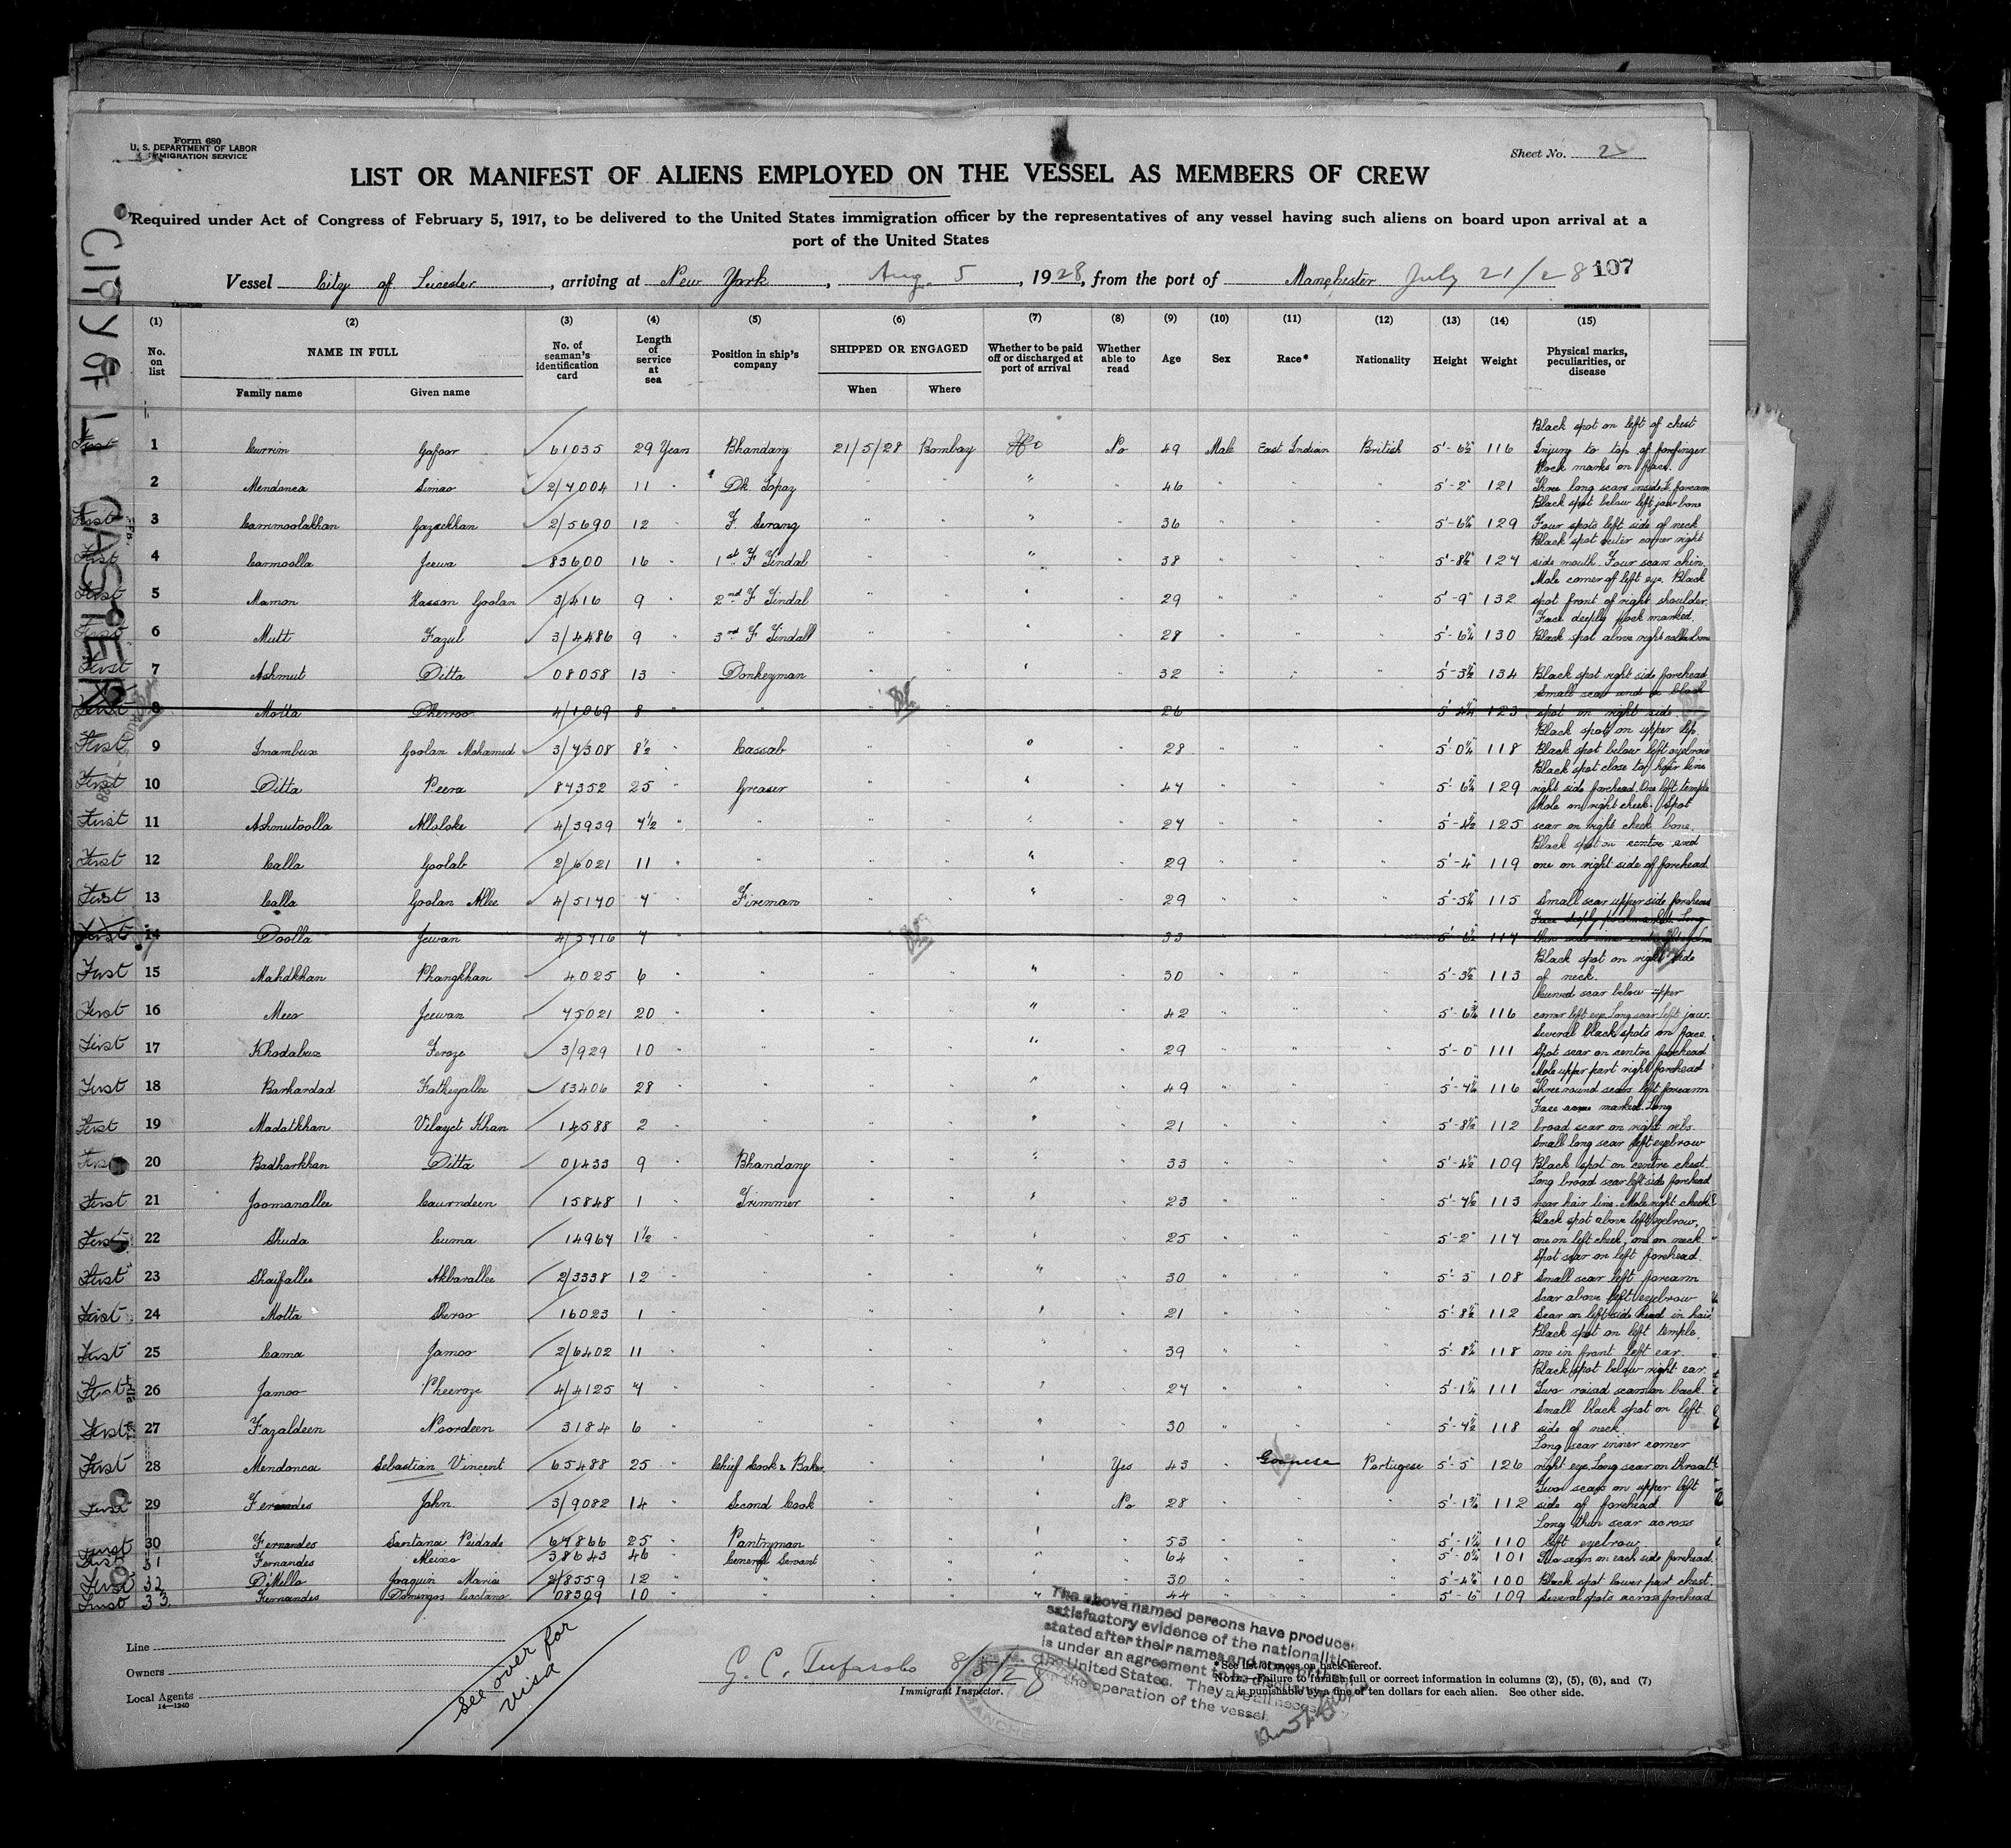 Form 680
U. S. DEPARTMENT OF LABOR
IMMIGRATION SERVICE
Sheet No. 2
LIST OR MANIFEST OF ALIENS EMPLOYED ON THE VESSEL AS MEMBERS OF CREW
Required under Act of Congress of February 5, 1917, to be delivered to the United States immigration officer by the representatives of any vessel having such aliens on board upon arrival at a
port of the United States
Vessel City of Leicester, arriving at New York, Aug. 5, 1928, from the port of Manchester July 21/28 107
(1) (2) (3) (4) (5) (6) (7) (8) (9) (10) (11) (12) (13) (14) (15)
No. on list NAME IN FULL Family name Given name No. of seaman's identification card Length of service at sea Position in ship's company SHIPPED OR ENGAGED When Where Whether to be paid off or discharged at port of arrival Whether able to read Age Sex Race* Nationality Height Weight Physical marks, peculiarities, or disease
First 1 Currim Gafoor 61035 29 Years Bhandary 21/5/28 Bombay No 49 Male East Indian British 5'-6½" 116 Black spot on left of chest Injury to top of forfinger
2 Mendonca Simao 2/7004 11 " Dk. Topaz " " " " 46 " " " 5'-2" 121 Pock marks on face. Three long scars inside L. forearm
First 3 Cammoolakhan Gazeekhan 2/5690 12 " F. Serang " " " " 36 " " " 5'-6¼" 129 Black spot below left jaw bone Four spots left side of neck
First 4 Carmoolla Jeewa 83600 16 " 1st F Tindal " " " " 38 " " " 5'-8½" 124 Black spot outer corner right side mouth. Four scars chin.
First 5 Mamon Hasson Goolan 3/416 9 " 2nd F Tindal " " " " 29 " " " 5'-9" 132 Mole corner of left eye. Black spot front of right shoulder.
First 6 Mutt Fazul 3/4486 9 " 3rd F Tindall " " " " 28 " " " 5'-6¼" 130 Face deeply pock marked. Black spot above right collar bone
First 7 Ashmut Ditta 08058 13 " Donkeyman " " " " 32 " " " 5'-3½" 134 Black spot right side forehead
First 8 Motta Dheroo 4/1069 8 " " " " 26 " " " 123 Small scar and a black spot on right side.
First 9 Imambux Goolan Mohamed 3/7308 8½ " Cassab " " " " 28 " " " 5'-0¼" 118 Black spot on upper lip. Black spot below left eyebrow
First 10 Ditta Peera 84352 25 " Greaser " " " " 47 " " " 5'-6¼" 129 Black spot close top hair line right side forehead. One left temple
First 11 Ashmutoolla Alloloke 4/3939 7½ " " " " " " 27 " " " 5'-4½" 125 Mole on right cheek. Spot scar on right cheek bone.
First 12 Calla Goolab 2/6021 11 " " " " " " 29 " " " 5'-4" 119 Black spot on centre and one on right side of forehead
First 13 Calla Goolan Allee 4/5170 7 " Fireman " " " " 29 " " " 5'-5¼" 115 Small scar upper side forehead
First 14 Doolla Jewan 4/3716 7 " " " " 33 " " " 117
First 15 Mahdkhan Phangkhan 4025 6 " " " " " " 30 " " " 5'-3½" 113 Black spot on right side of neck.
First 16 Meer Jeewan 75021 20 " " " " " " 42 " " " 5'-6¾" 116 Curved scar below upper corner left eye. Long scar left jaw.
First 17 Khodabux Feroze 3/929 10 " " " " " " 29 " " " 5'-0" 111 Several black spots on face. Spot scar on centre forehead
First 18 Barkardad Fatheyallee 83406 28 " " " " " " 49 " " " 116 Mole upper part right forehead Three round scars left forearm
First 19 Madatkhan Vilayet Khan 14588 2 " " " " " " 21 " " " 5'-8½" 112 Face acne marked. Long broad scar on right ribs.
First 20 Badharkhan Ditta 01433 9 " Bhandary " " " " 33 " " " 5'-4½" 109 Small long scar left eyebrow Black spot on centre chest.
First 21 Joomanallee Caurndeen 15848 1 " Trimmer " " " " 23 " " " 5'-7½" 113 Long broad scar left side forehead near hair line. Mole right cheek
First 22 Shuda Cuma 14967 1½ " " " " " " 25 " " " 5'-2" 117 Black spot above left eyebrow, one on left cheek, one on neck.
First 23 Shaifallee Akbarallee 2/3338 12 " " " " " " 30 " " " 5'-5" 108 Spot scar on left forehead. Small scar left forearm
First 24 Motta Sheroo 16023 1 " " " " " " 21 " " " 5'-8½" 112 Scar above left eyebrow Scar on left side head in hair
First 25 Cama Jamoo 2/6402 11 " " " " " " 39 " " " 118 Black spot on left temple. one in front left ear.
First 26 Jamoo Pheeroze 4/4125 7 " " " " " " 27 " " " 5'-1¼" 111 Black spot below right ear Two raised scars on back.
First 27 Fazaldeen Noordeen 3184 6 " " " " " " 30 " " " 5'-7½" 118 Small black spot on left side of neck
First 28 Mendonca Sebastian Vincent 65488 25 " Chief Cook & Baker " " " Yes 43 " Goanese Portugese 5'-5" 126 Long scar inner corner right eye. Long scar on throat
First 29 Fernandes John 3/9082 14 " Second Cook " " " No 28 " " " 5'-1¾" 112 Two scars on upper left side of forehead
First 30 Fernandes Santana Peidade 67866 25 " Pantryman " " " " 53 " " " 5'-1¼" 110 Long thin scar across left eyebrow
First 31 Fernandes 38643 46 " General Servant " " " " 64 " " " 5'-0¼" 101 Two scars on each side forehead.
First 32 D'Mello Joaquin Maria 2/8559 12 " " " " " " 30 " " " 100 Black spot lower part chest.
First 33 Fernandes Domingos Caetano 08309 10 " " " " " " 44 " " " 5'-6" 109 Several spots across forehead
CITY OF LEICESTER
Line
Owners
Local Agents
14—1240
See over for
visa
G. C. 8/5/28
Immigrant Inspector.
The above named persons have produced
satisfactory evidence of the nationalities
stated after their names and
is under an agreement to be
the United States. They are all
for the operation of the vessel.
* See list of races on back hereof.
NOTE.—Failure to furnish full or correct information in columns (2), (5), (6), and (7)
is punishable by a fine of ten dollars for each alien. See other side.